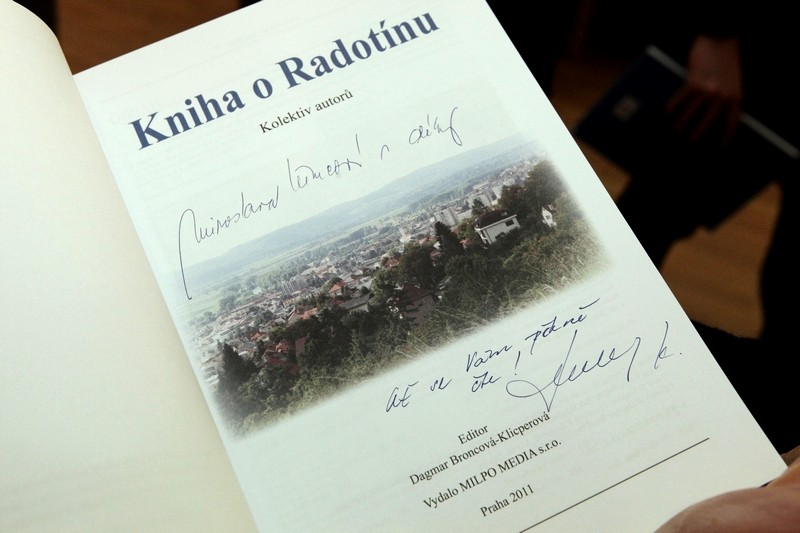 Kniha o Radotínu
Kolektiv autorů
Miroslava s díky
Ať se Vám pěkně
čte!
Editor
Dagmar Broncová-Klicperová
Vydalo MILPO MEDIA s.r.o.
Praha 2011